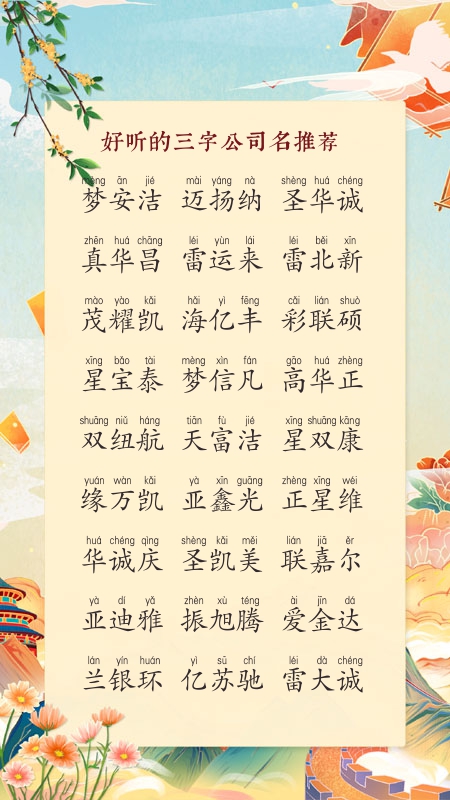 好听的三字公司名推荐
mèng ān jié mài yáng nà shèng huá chéng
梦安洁 迈扬纳 圣华诚
zhēn huá chāng léi yùn lái léi běi xīn
真华昌 雷运来 雷北新
mào yào kǎi hǎi yì fēng cǎi lián shuò
茂耀凯 海亿丰 彩联硕
xīng bǎo tài mèng xìn fán gāo huá zhèng
星宝泰 梦信凡 高华正
shuāng niǔ háng tiān fù jié xīng shuāng kāng
双纽航 天富洁 星双康
yuán wàn kǎi yà xīn guāng zhèng xīng wéi
缘万凯 亚鑫光 正星维
huá chéng qìng shèng kǎi měi lián jiā ěr
华诚庆 圣凯美 联嘉尔
yà dí yǎ zhèn xù téng ài jīn dá
亚迪雅 振旭腾 爱金达
lán yín huán yì sū chí léi dà chéng
兰银环 亿苏驰 雷大诚